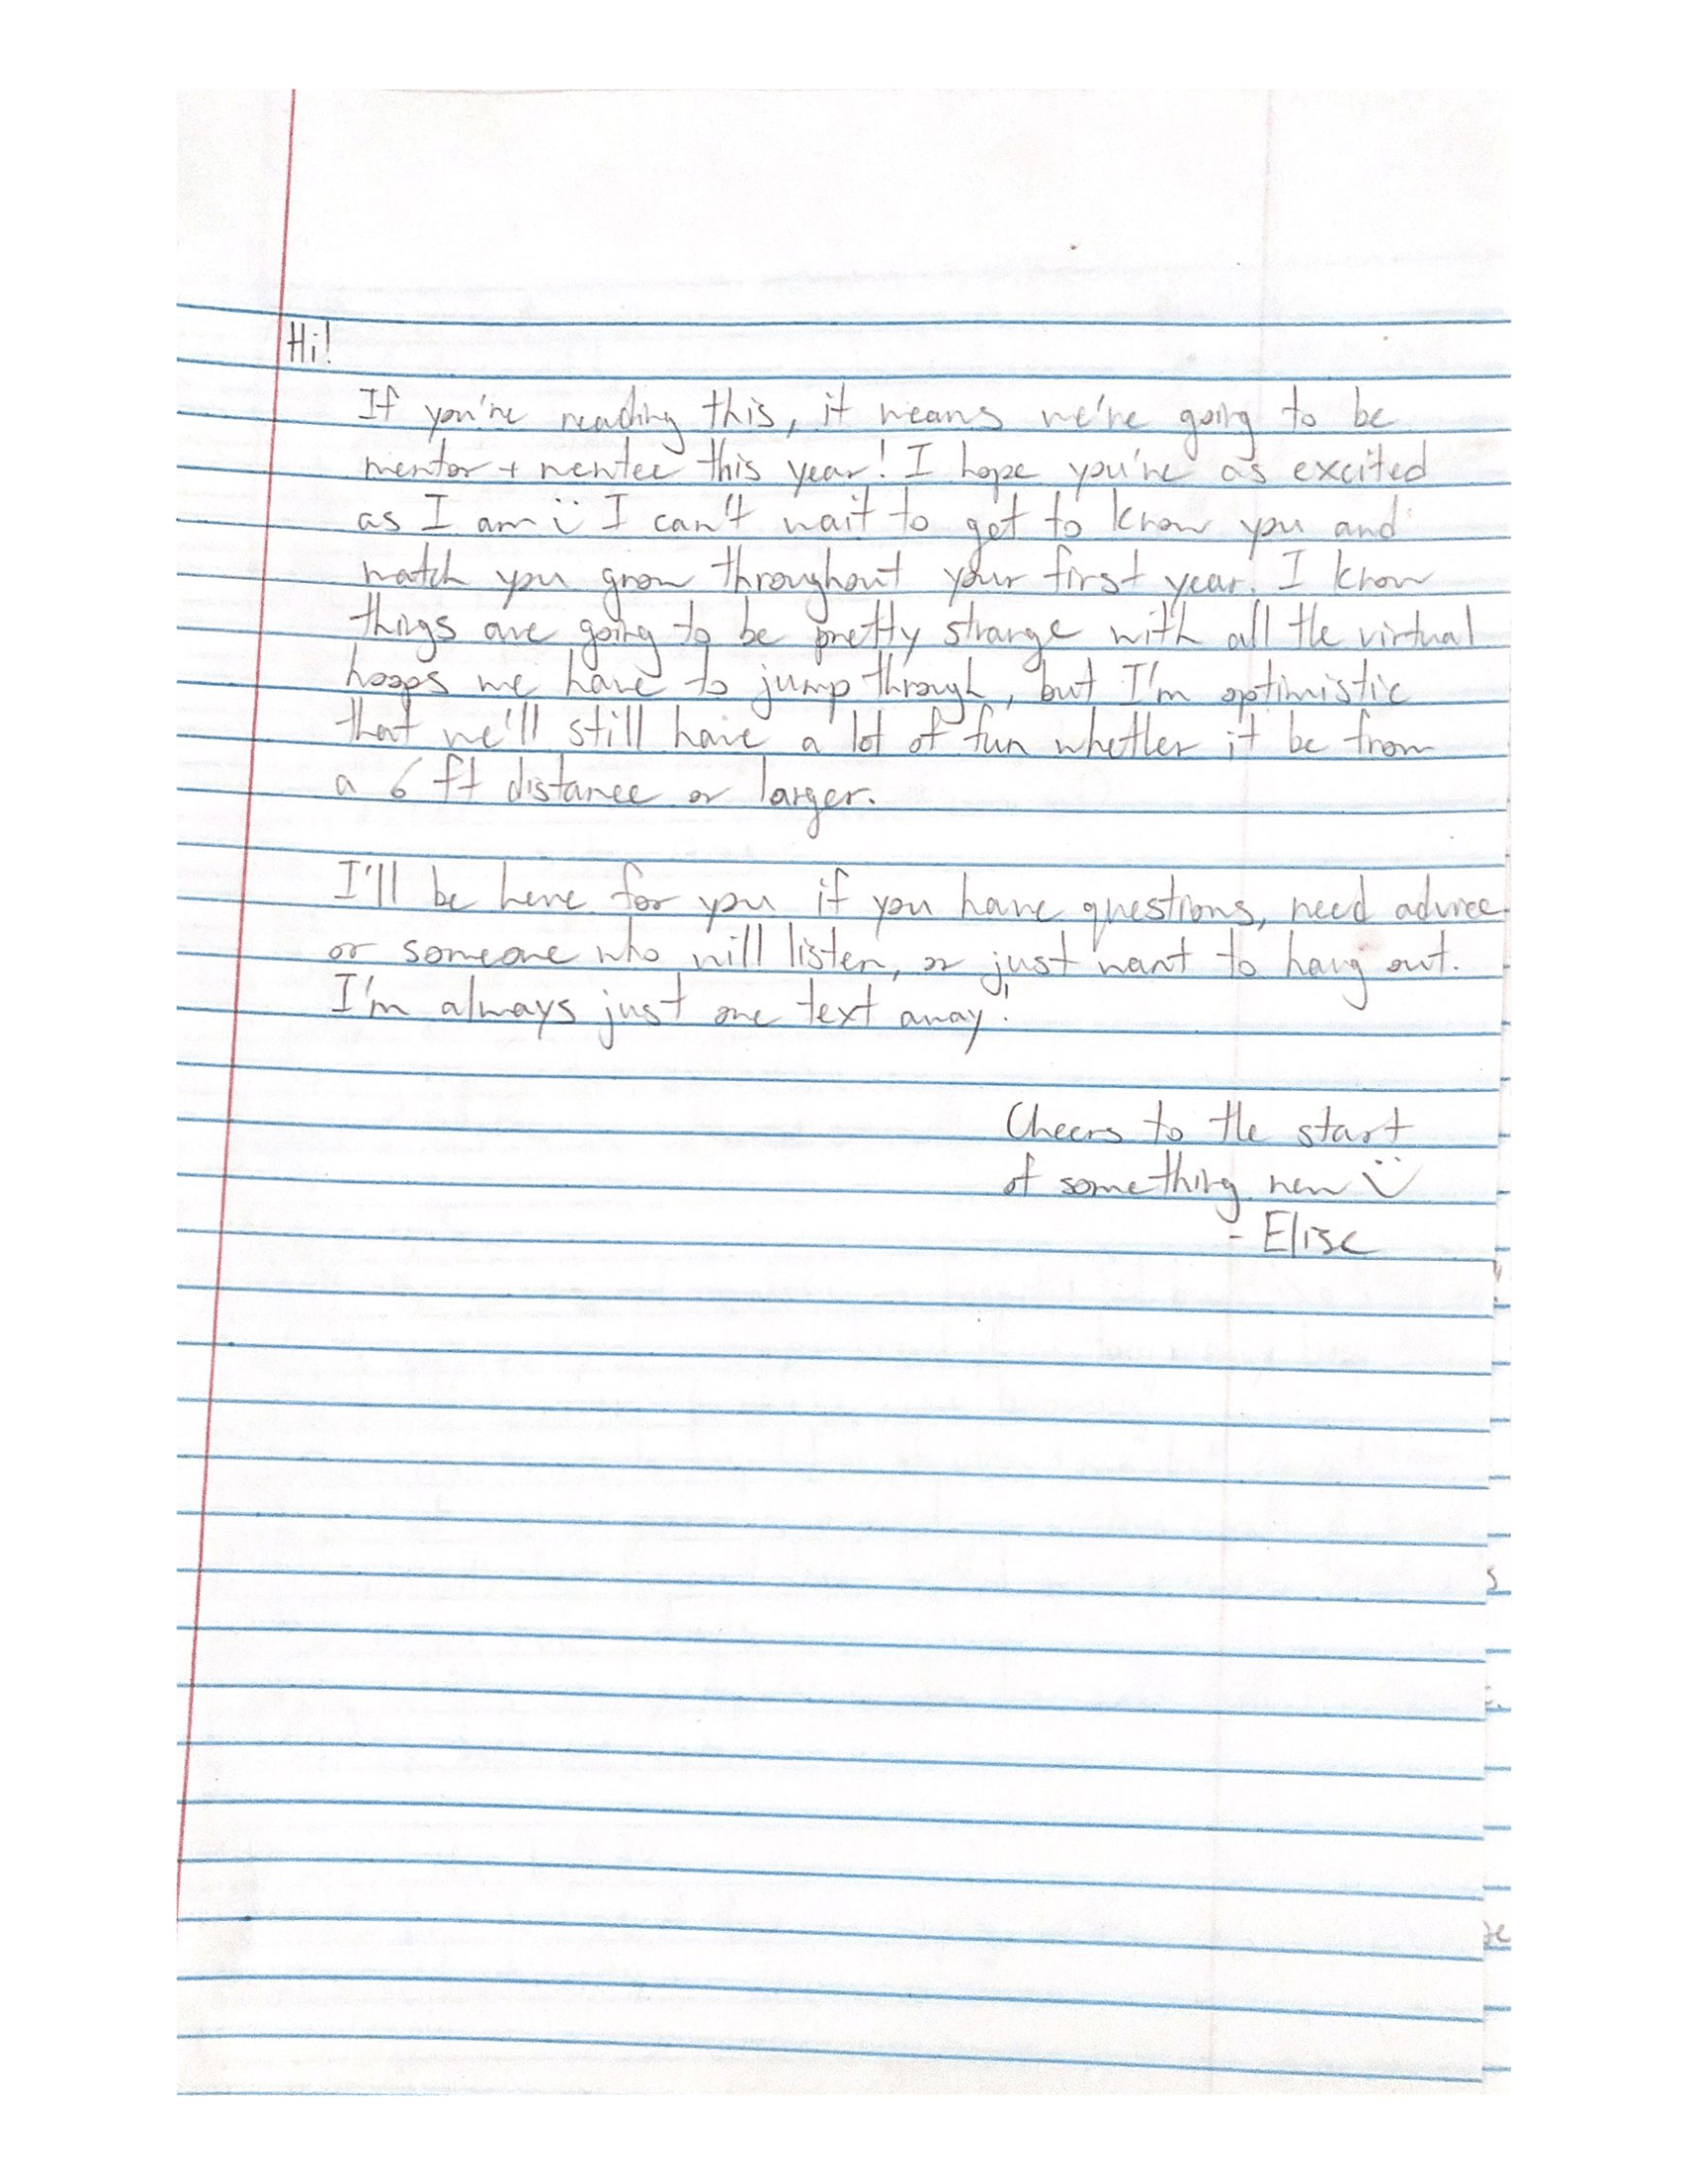 Hi!
If you're reading this, it means we're going to be
mentor + mentee this year! I hope you're as excited
as I am :) I can't wait to get to know you and
watch you grow throughout your first year. I know
things are going to be pretty strange with all the virtual
hoops we have to jump through, but I'm optimistic
that we'll still have a lot of fun whether it be from
a 6 ft distance or larger.
I'll be here for you if you have questions, need advice
or someone who will listen, or just want to hang out.
I'm always just one text away!
Cheers to the start
of something new :)
- Elise